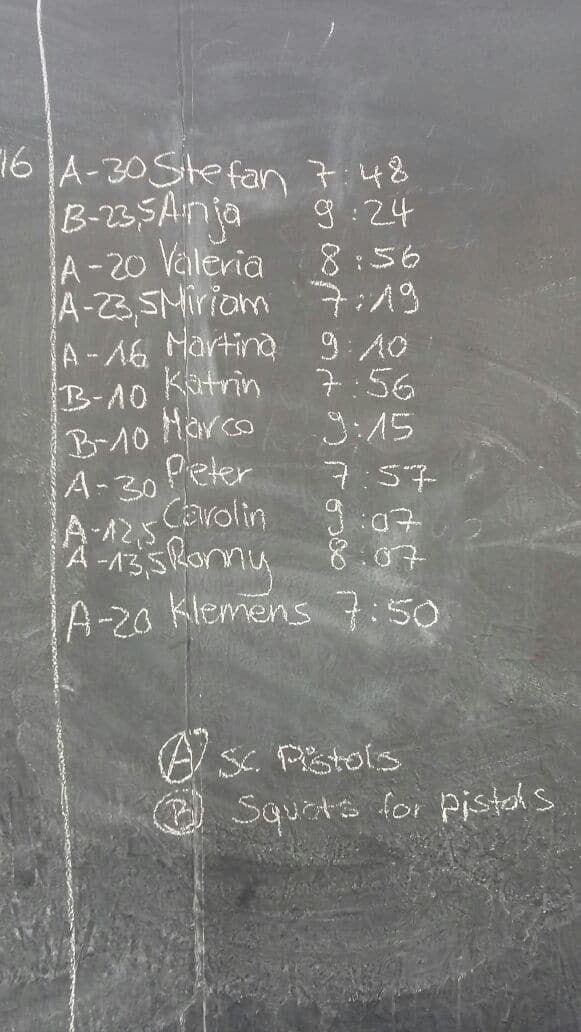 16 A-30 Stefan 7:48
B-23,5 Anja 9:24
A-20 Valeria 8:56
A-23,5 Miriam 7:19
A-16 Martina 9:10
B-10 Katrin 7:56
B-10 Marco 9:15
A-30 Peter 7:57
A-12,5 Carolin 9:07
A-13,5 Ronny 8:07
A-20 Klemens 7:50
A sc. Pistols
B Squats for pistols